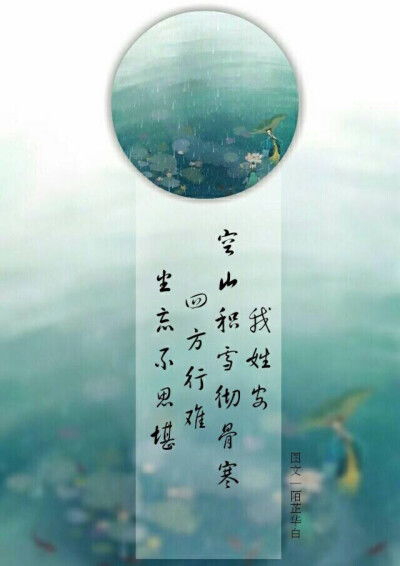 我姓安
空山积雪彻骨寒
四方行难
坐忘不思堪
图文|陌芷华白